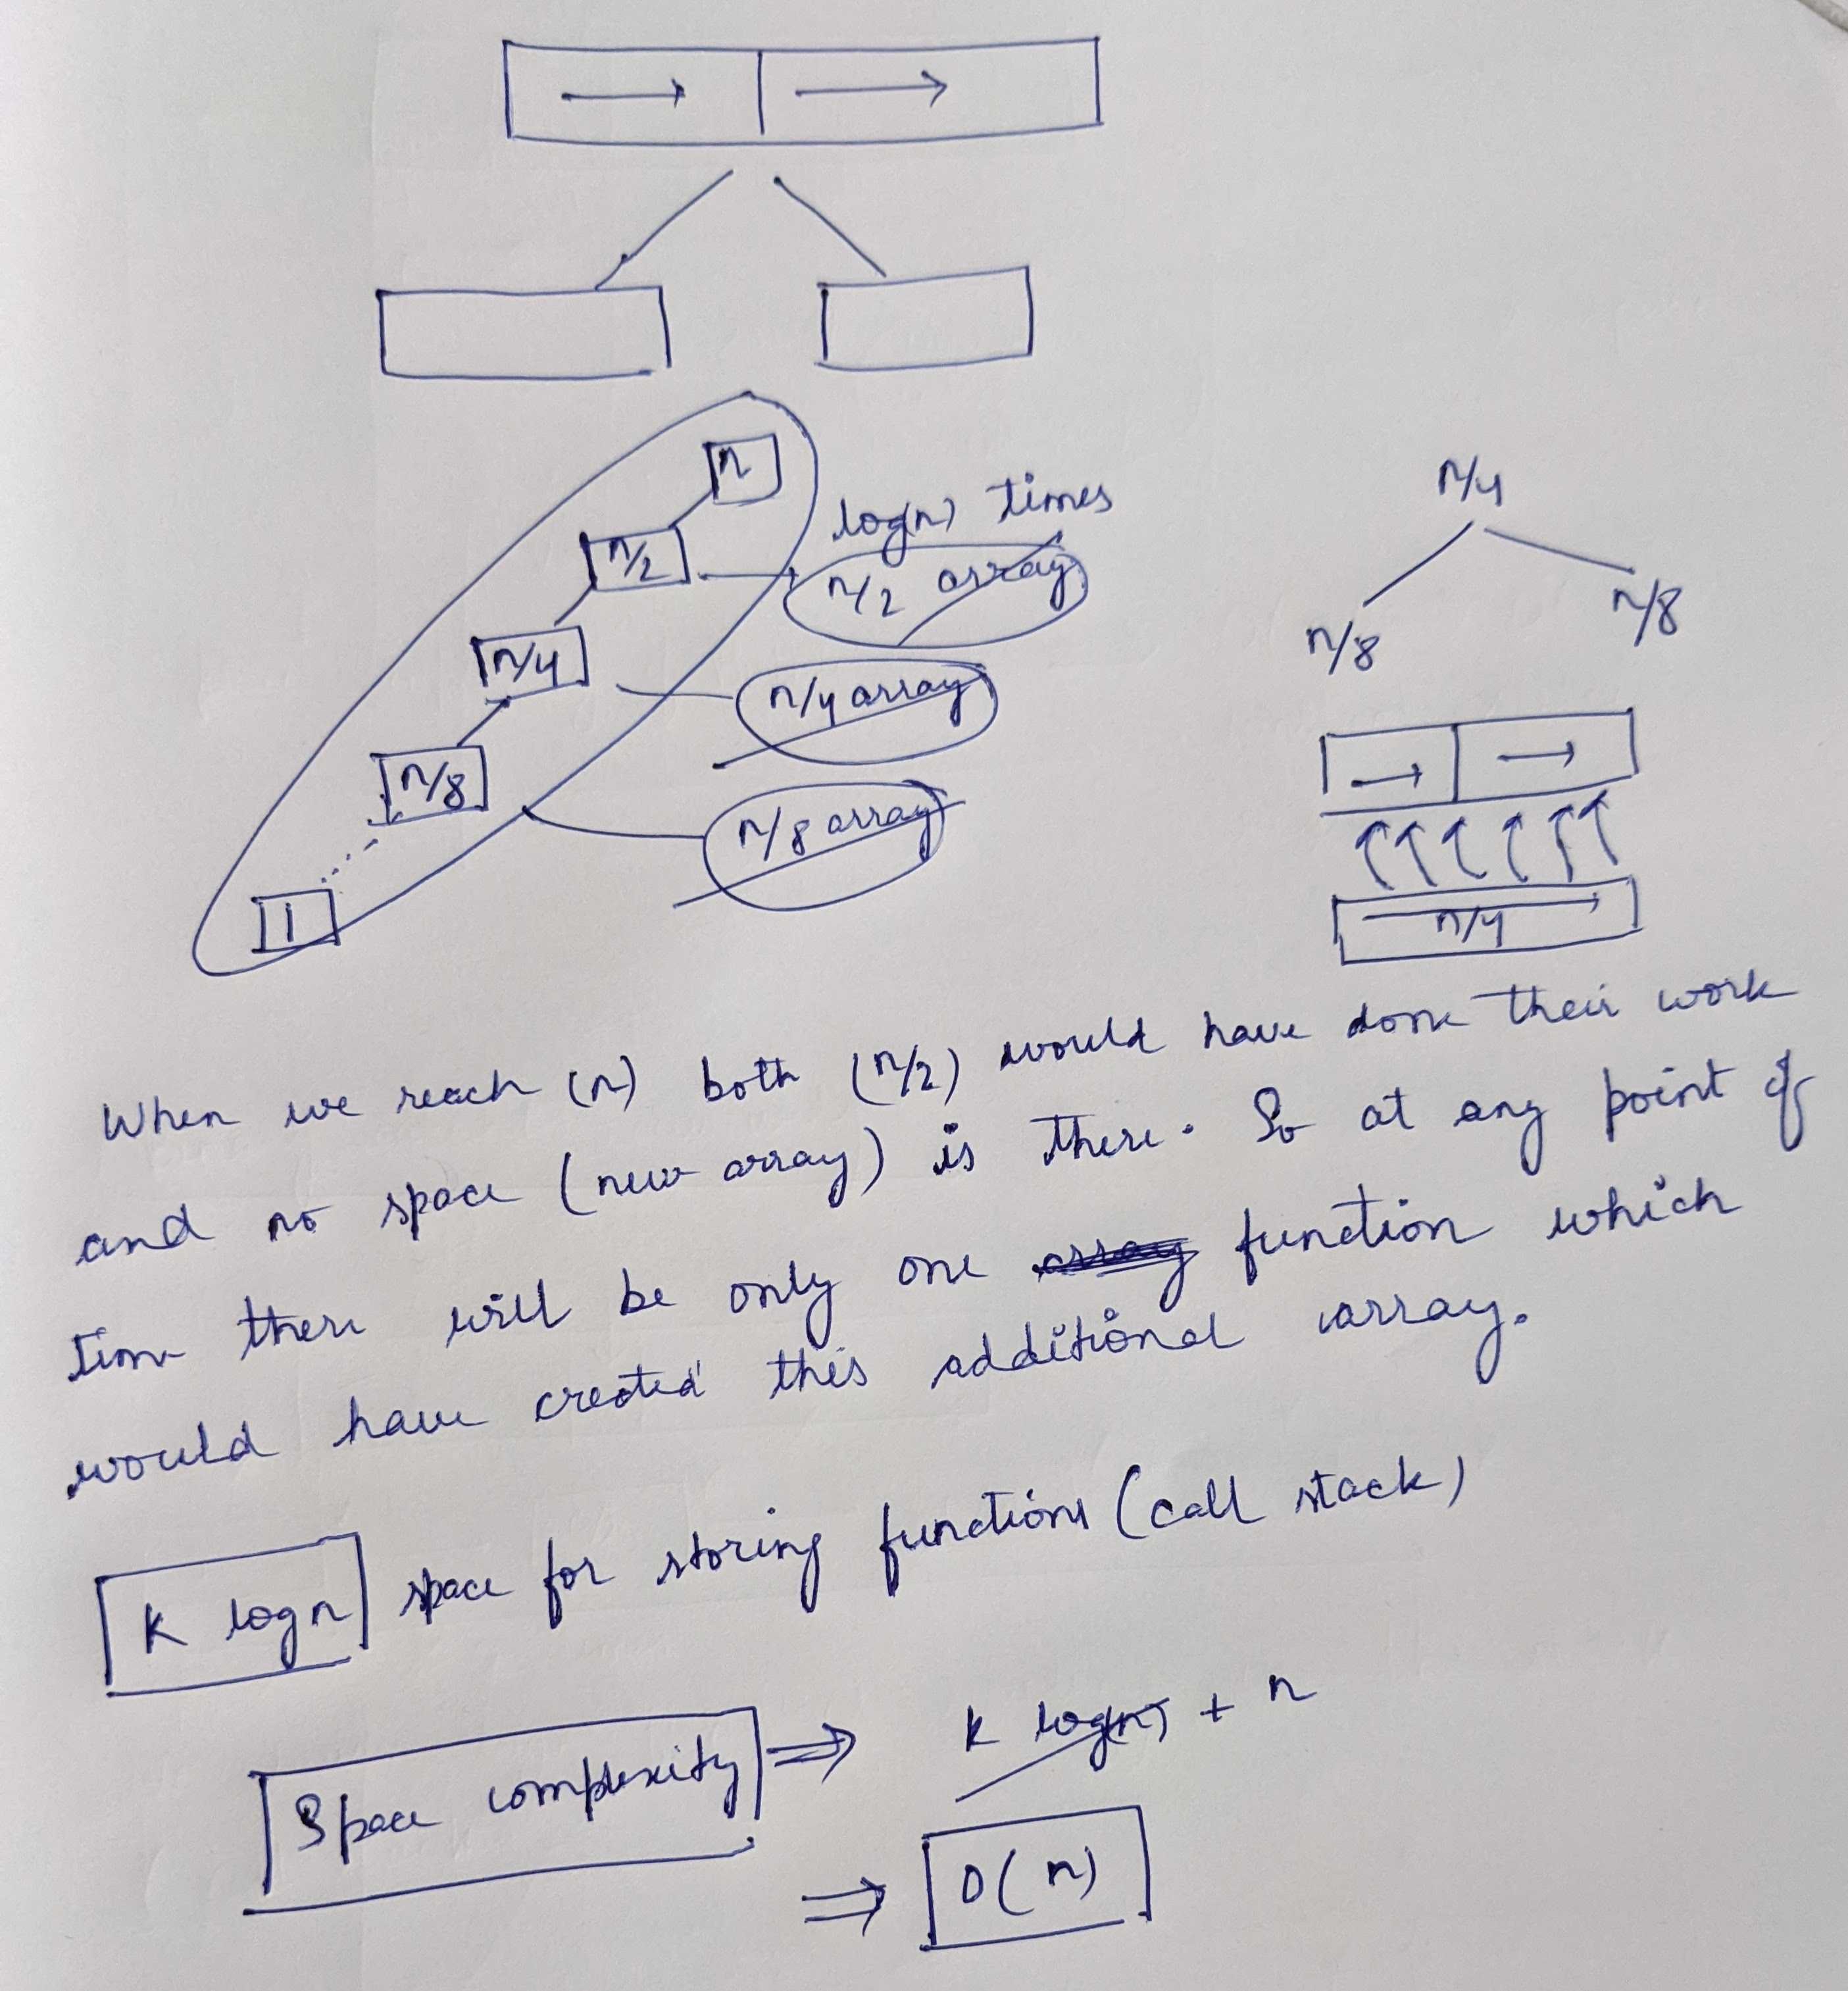 n
log(n) times
n/2
n/2 array
n/4
n/4 array
n/8
n/8 array
1
n/4
n/8
n/8
n/4
When we reach (n) both (n/2) would have done their work
and no space (new array) is there. So at any point of
time there will be only one array function which
would have created this additional array.
K log n space for storing functions (call stack)
Space complexity ⇒ k log(n) + n
⇒ O(n)